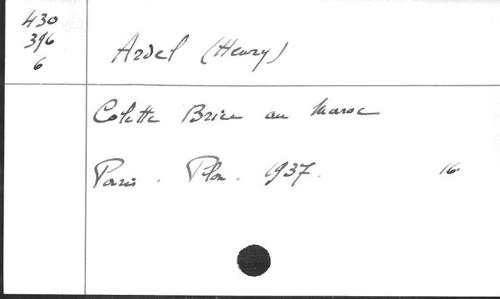 430
396
6
Ardel (Henry)
Colette Brice au Maroc
Paris. Plon. 1937. 16